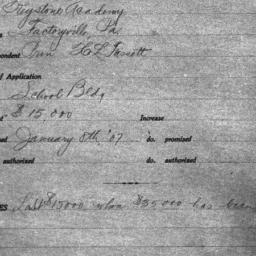 Keystone Academy
Factoryville, Pa.
pondent Prin
f Application
School Bldg
$15,000 Increase
ed January 8th '07 do. promised
authorized do. authorized
ES Last $15000 when $35000 has been